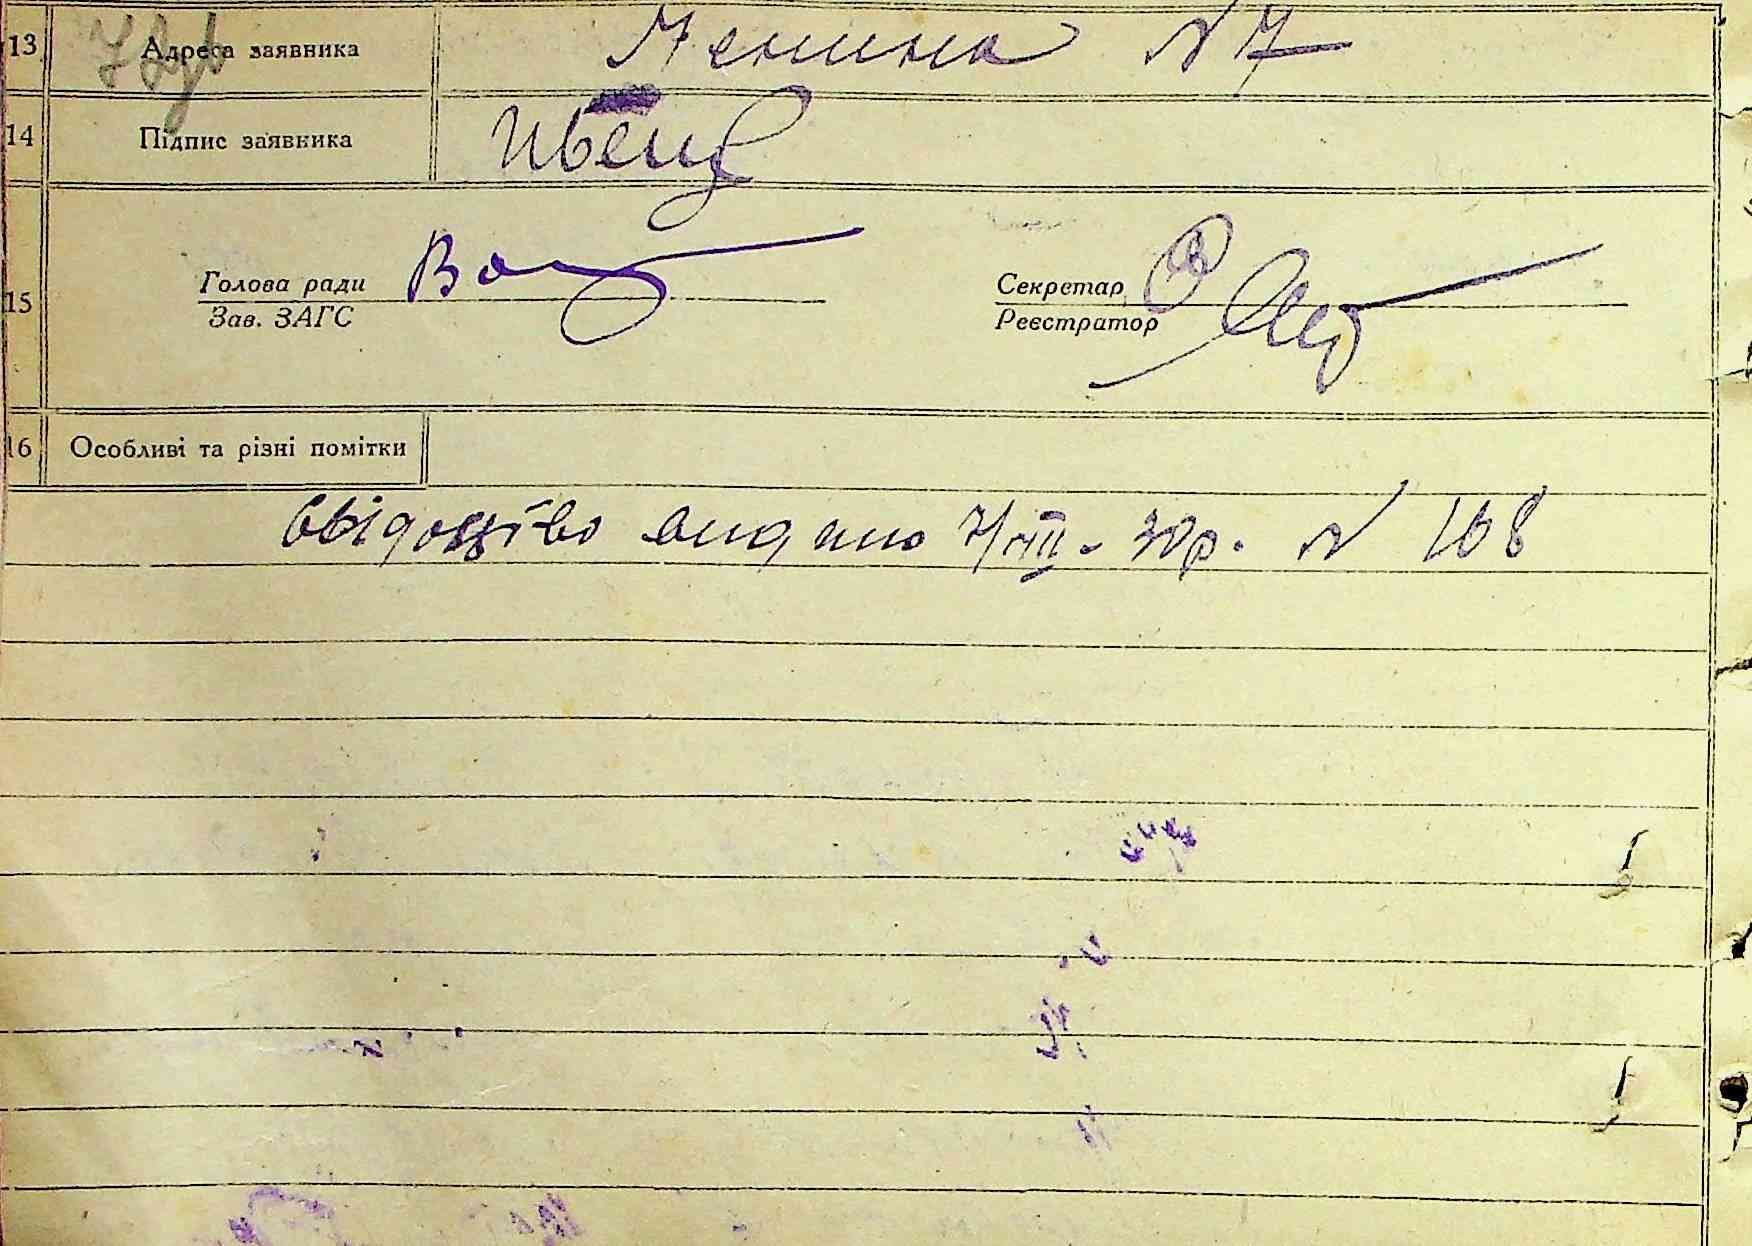 13 Адреса заявника Ленина N 7
14 Підпис заявника Швец
15 Голова ради Секретар
Зав. ЗАГС Реєстратор
16 Особливі та різні помітки
Свідоцтво видано N 168